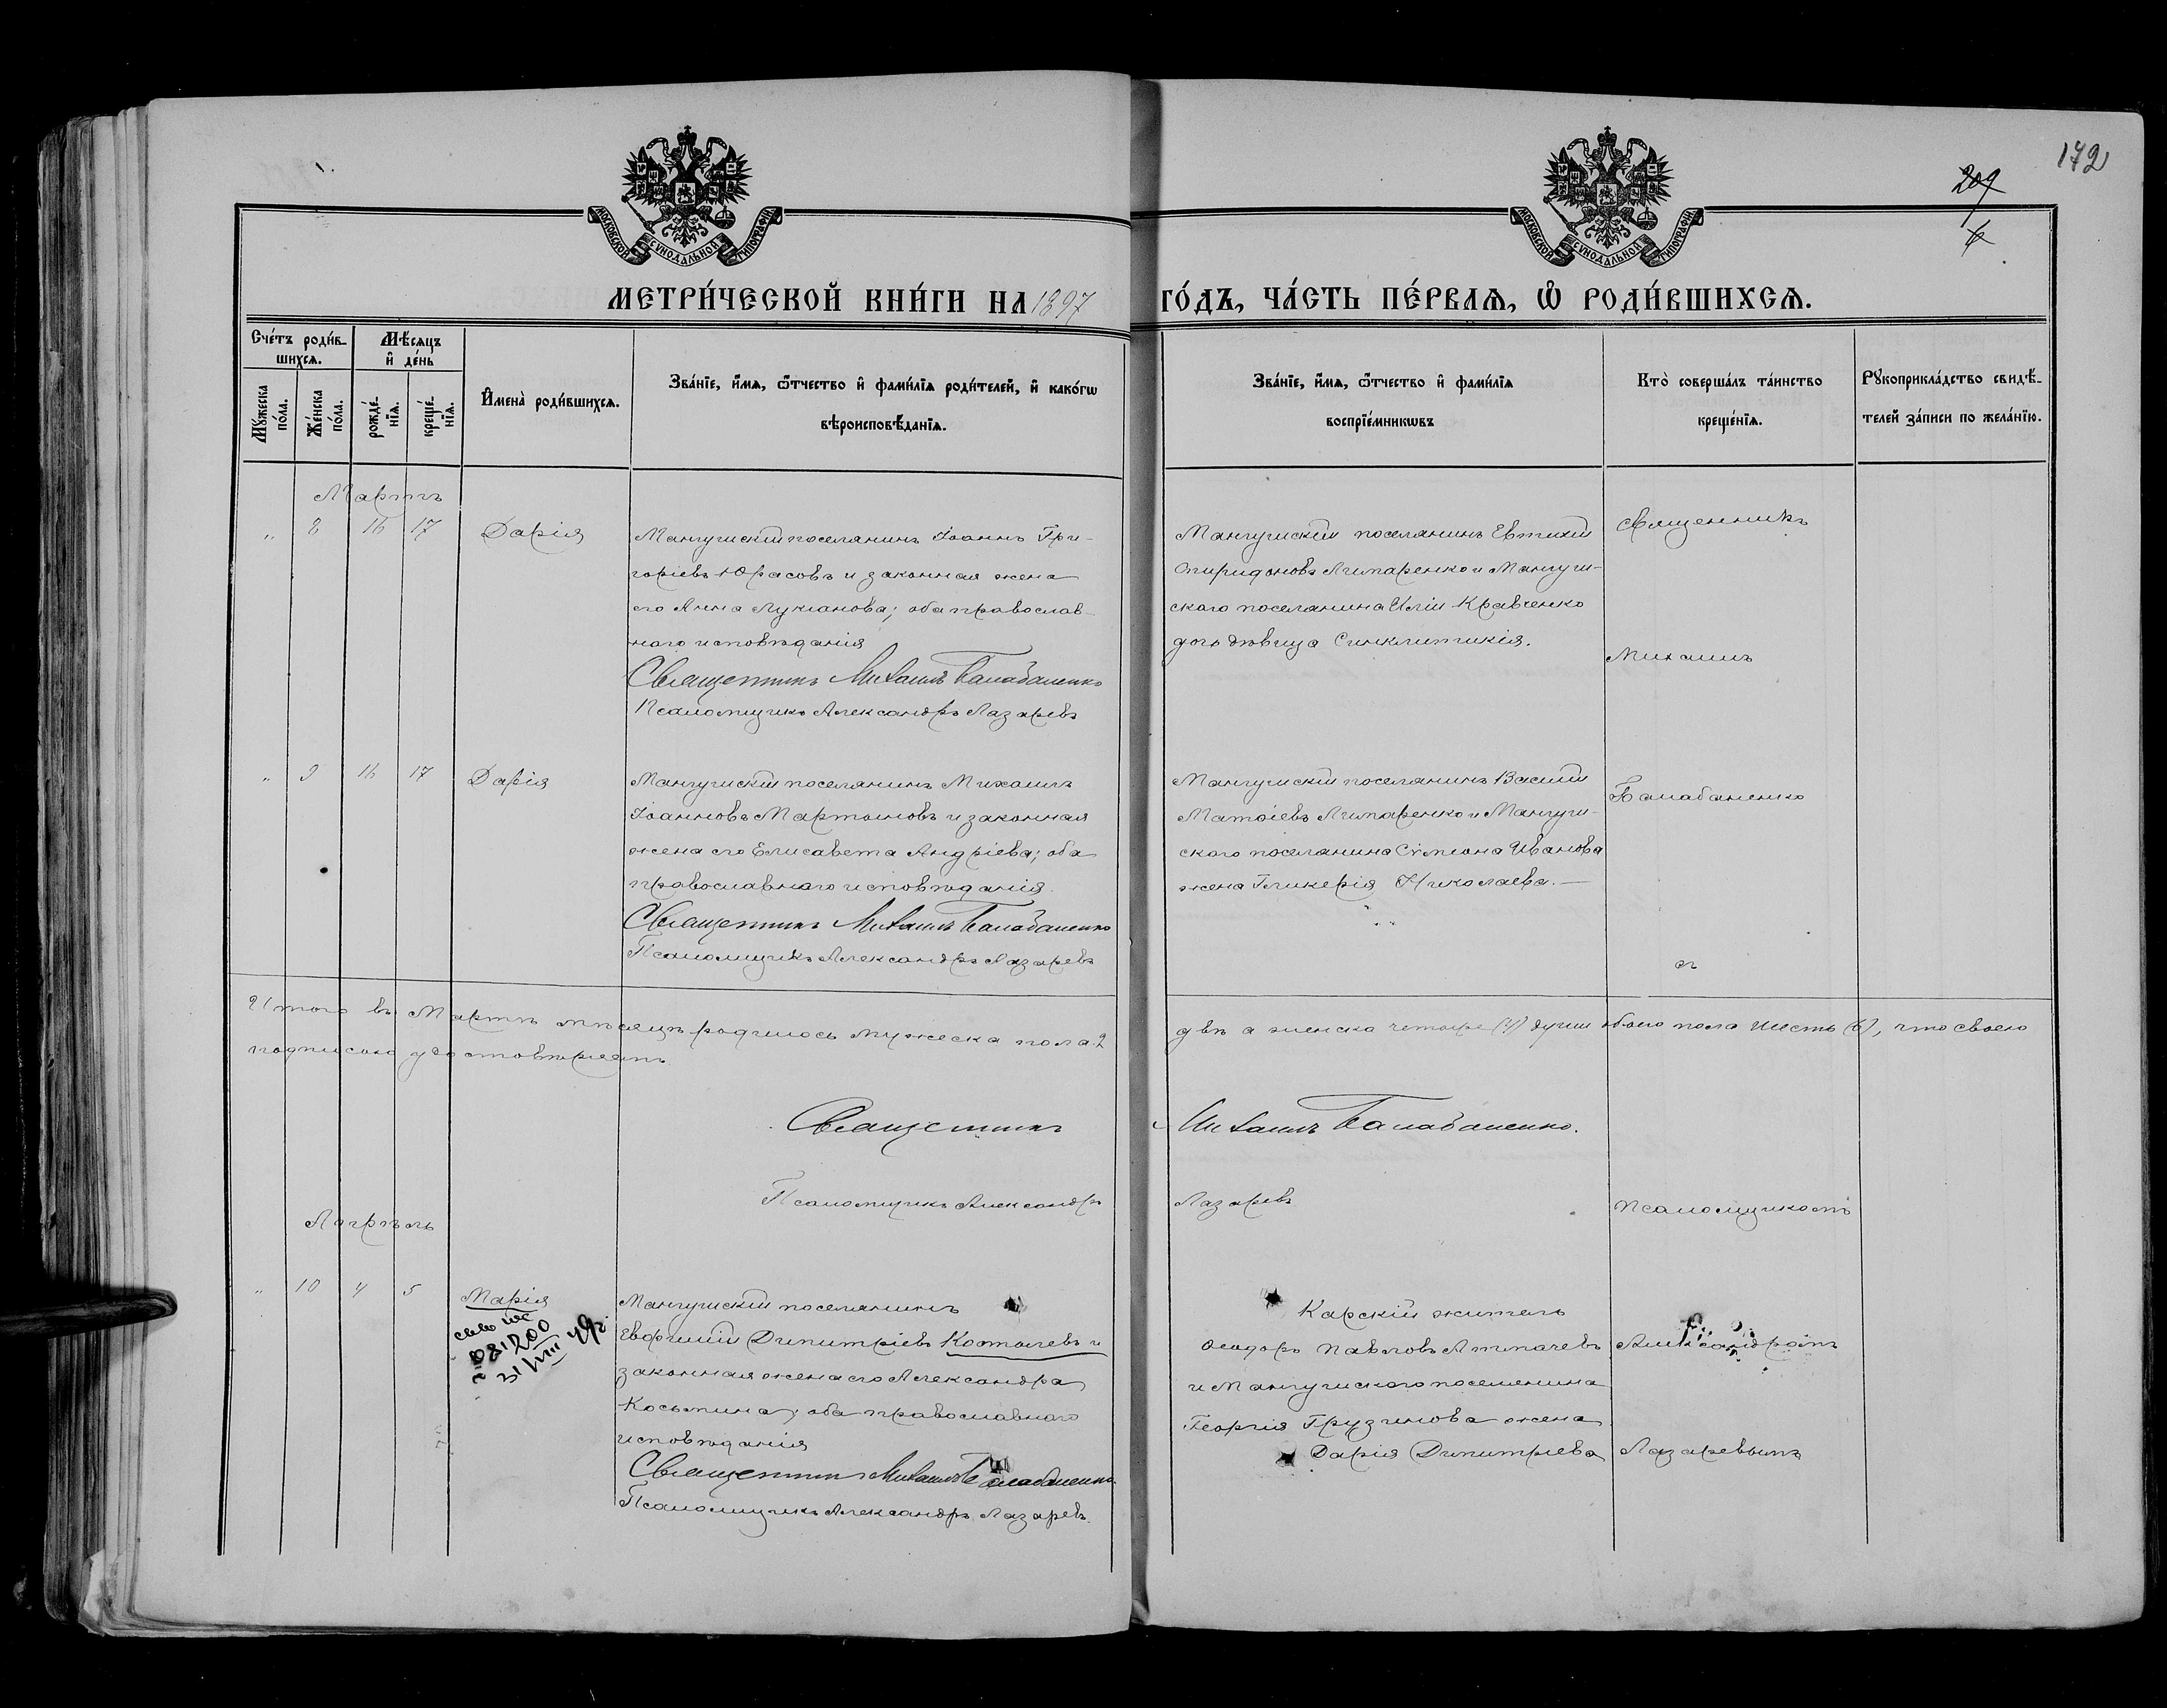 172
209
МОСКОВСКОЙ СѴНОДАЛЬНОЙ ТИПОГРАФІИ
МОСКОВСКОЙ СѴНОДАЛЬНОЙ ТИПОГРАФІИ
МЕТРИ́ЧЕСКОЙ КНИ́ГИ НА 1897 ГО́ДЪ, ЧА́СТЬ ПЕ́РВАЯ, Ѡ РОДИ́ВШИХСЯ.
Сче́тъ роди́в-
шихся.
Мѣ́сяцъ
и҆ де́нь
Мꙋ́жеска
по́ла.
Же́нска
по́ла.
рожде́-
нїя.
креще́-
нїя.
И҆мена̀ роди́вшихся.
Зва́нїе, и҆́мя, ѻ҆́тчество и҆ фами́лїя роди́телей, и҆ како́гѡ
вѣроисповѣ́данїя.
Зва́нїе, и҆́мя, ѻ҆́тчество и҆ фами́лїя
воспрїе́мникѡвъ
Кто̀ соверша́лъ та́инство
креще́нїя.
Рꙋкоприкла́дство свидѣ́-
телей за́писи по жела́нїю.
Мартъ
„ 8 16 17 Дарія
Мангушскій поселянинъ Іоаннъ Гри-
горіевъ Юрасовъ и законная жена
его Анна Лукіанова; оба православ-
наго исповѣданія
Священникъ Михаилъ Балабаненко
Псаломщикъ Александръ Лазаревъ
Мангушскій поселянинъ Евтихій
Спиридоновъ Лимаренко и Мангуш-
скаго поселянина Иліи Кравченко
дочь дѣвица Синклитикія.
Священникъ
Михаилъ
„ 9 16 17 Дарія
Мангушскій поселянинъ Михаилъ
Іоанновъ Мартыновъ и законная
жена его Елисавета Андріева; оба
православнаго исповѣданія.
Священникъ Михаилъ Балабаненко
Псаломщикъ Александръ Лазаревъ
Мангушскій поселянинъ Василій
Матѳіевъ Лимаренко и Мангуш-
скаго поселянина Сѵмеона Иванова
жена Гликерія Николаева. —
Балабаненко
съ
Итого въ Мартѣ мѣсяцѣ родилось мужеска пола 2 двѣ а женска четыре (4) души обоего пола шесть (6), что своею
подписью удостовѣряемъ
Священникъ Михаилъ Балабаненко.
Псаломщикъ Александръ Лазаревъ
псаломщикомъ
Апрѣль
„ 10 4 5 Марія
081200
31/VIII 49г.
Мангушскій поселянинъ
Евфимій Димитріевъ Костычевъ и
законная жена его Александра
Косьмина; оба православнаго
исповѣданія
Священникъ Михаилъ Балабаненко
Псаломщикъ Александръ Лазаревъ.
Карскій житель
Ѳеодоръ Павловъ Атмачевъ
и Мангушскаго поселянина
Георгія Грузинова жена
Дарія Димитріева
Александромъ
Лазаревымъ